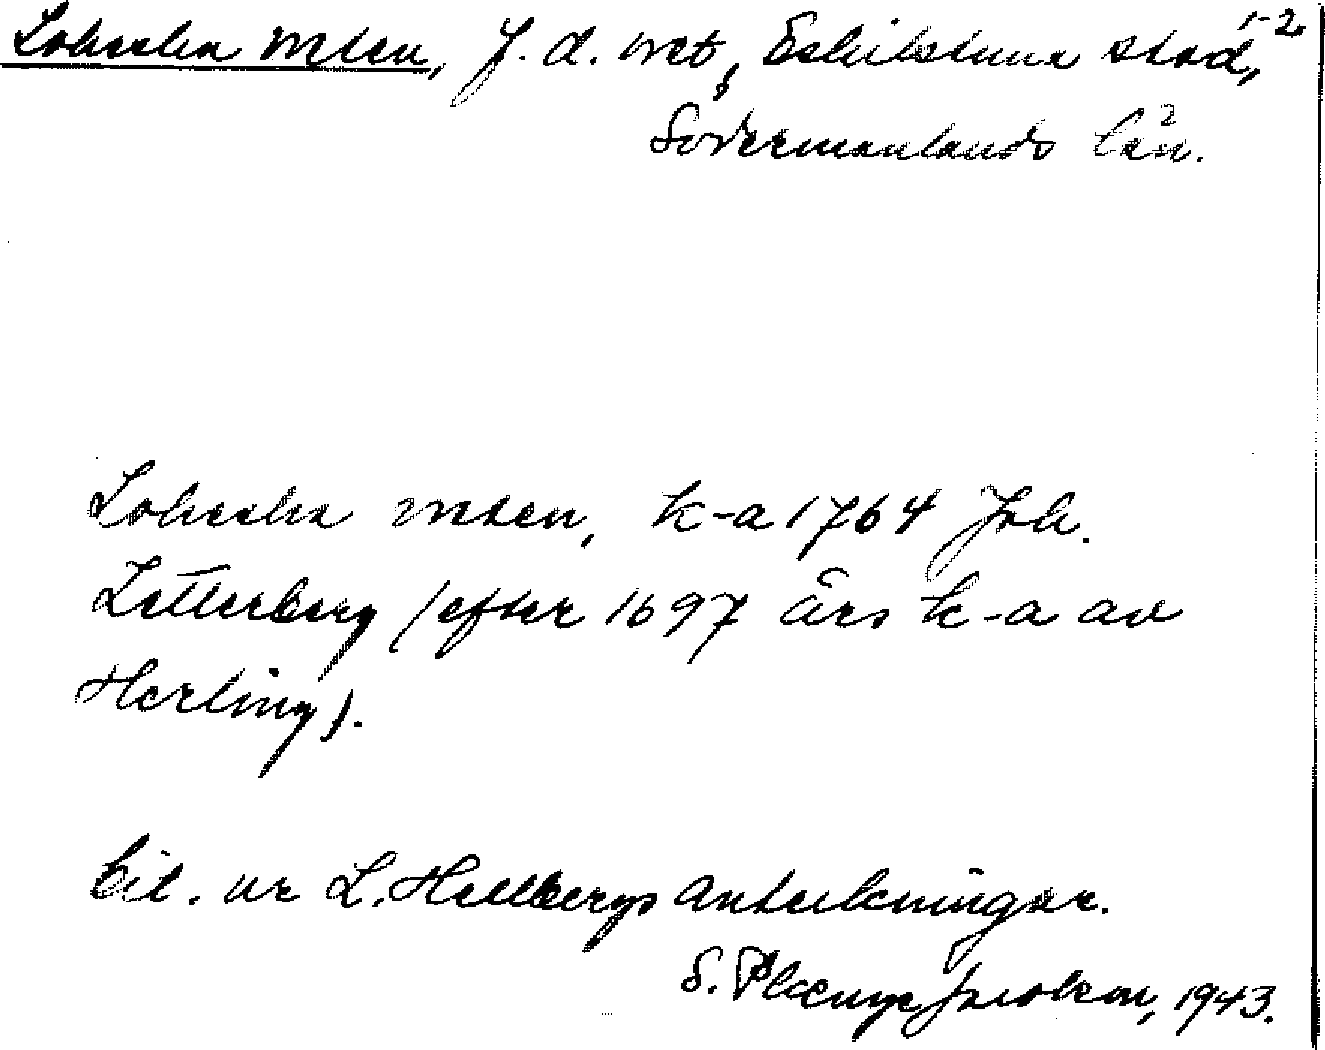 Loheska mten, f. d. äget, Eskilstuna stad, 1-2
Södermanlands län. 2
Loheska mten, k-a 1764 Joh.
Zetterberg (efter 1697 års k-a av
Herling).
Cit. ur L. Hellbergs anteckningar.
S. Plænge Jacobson, 1943.